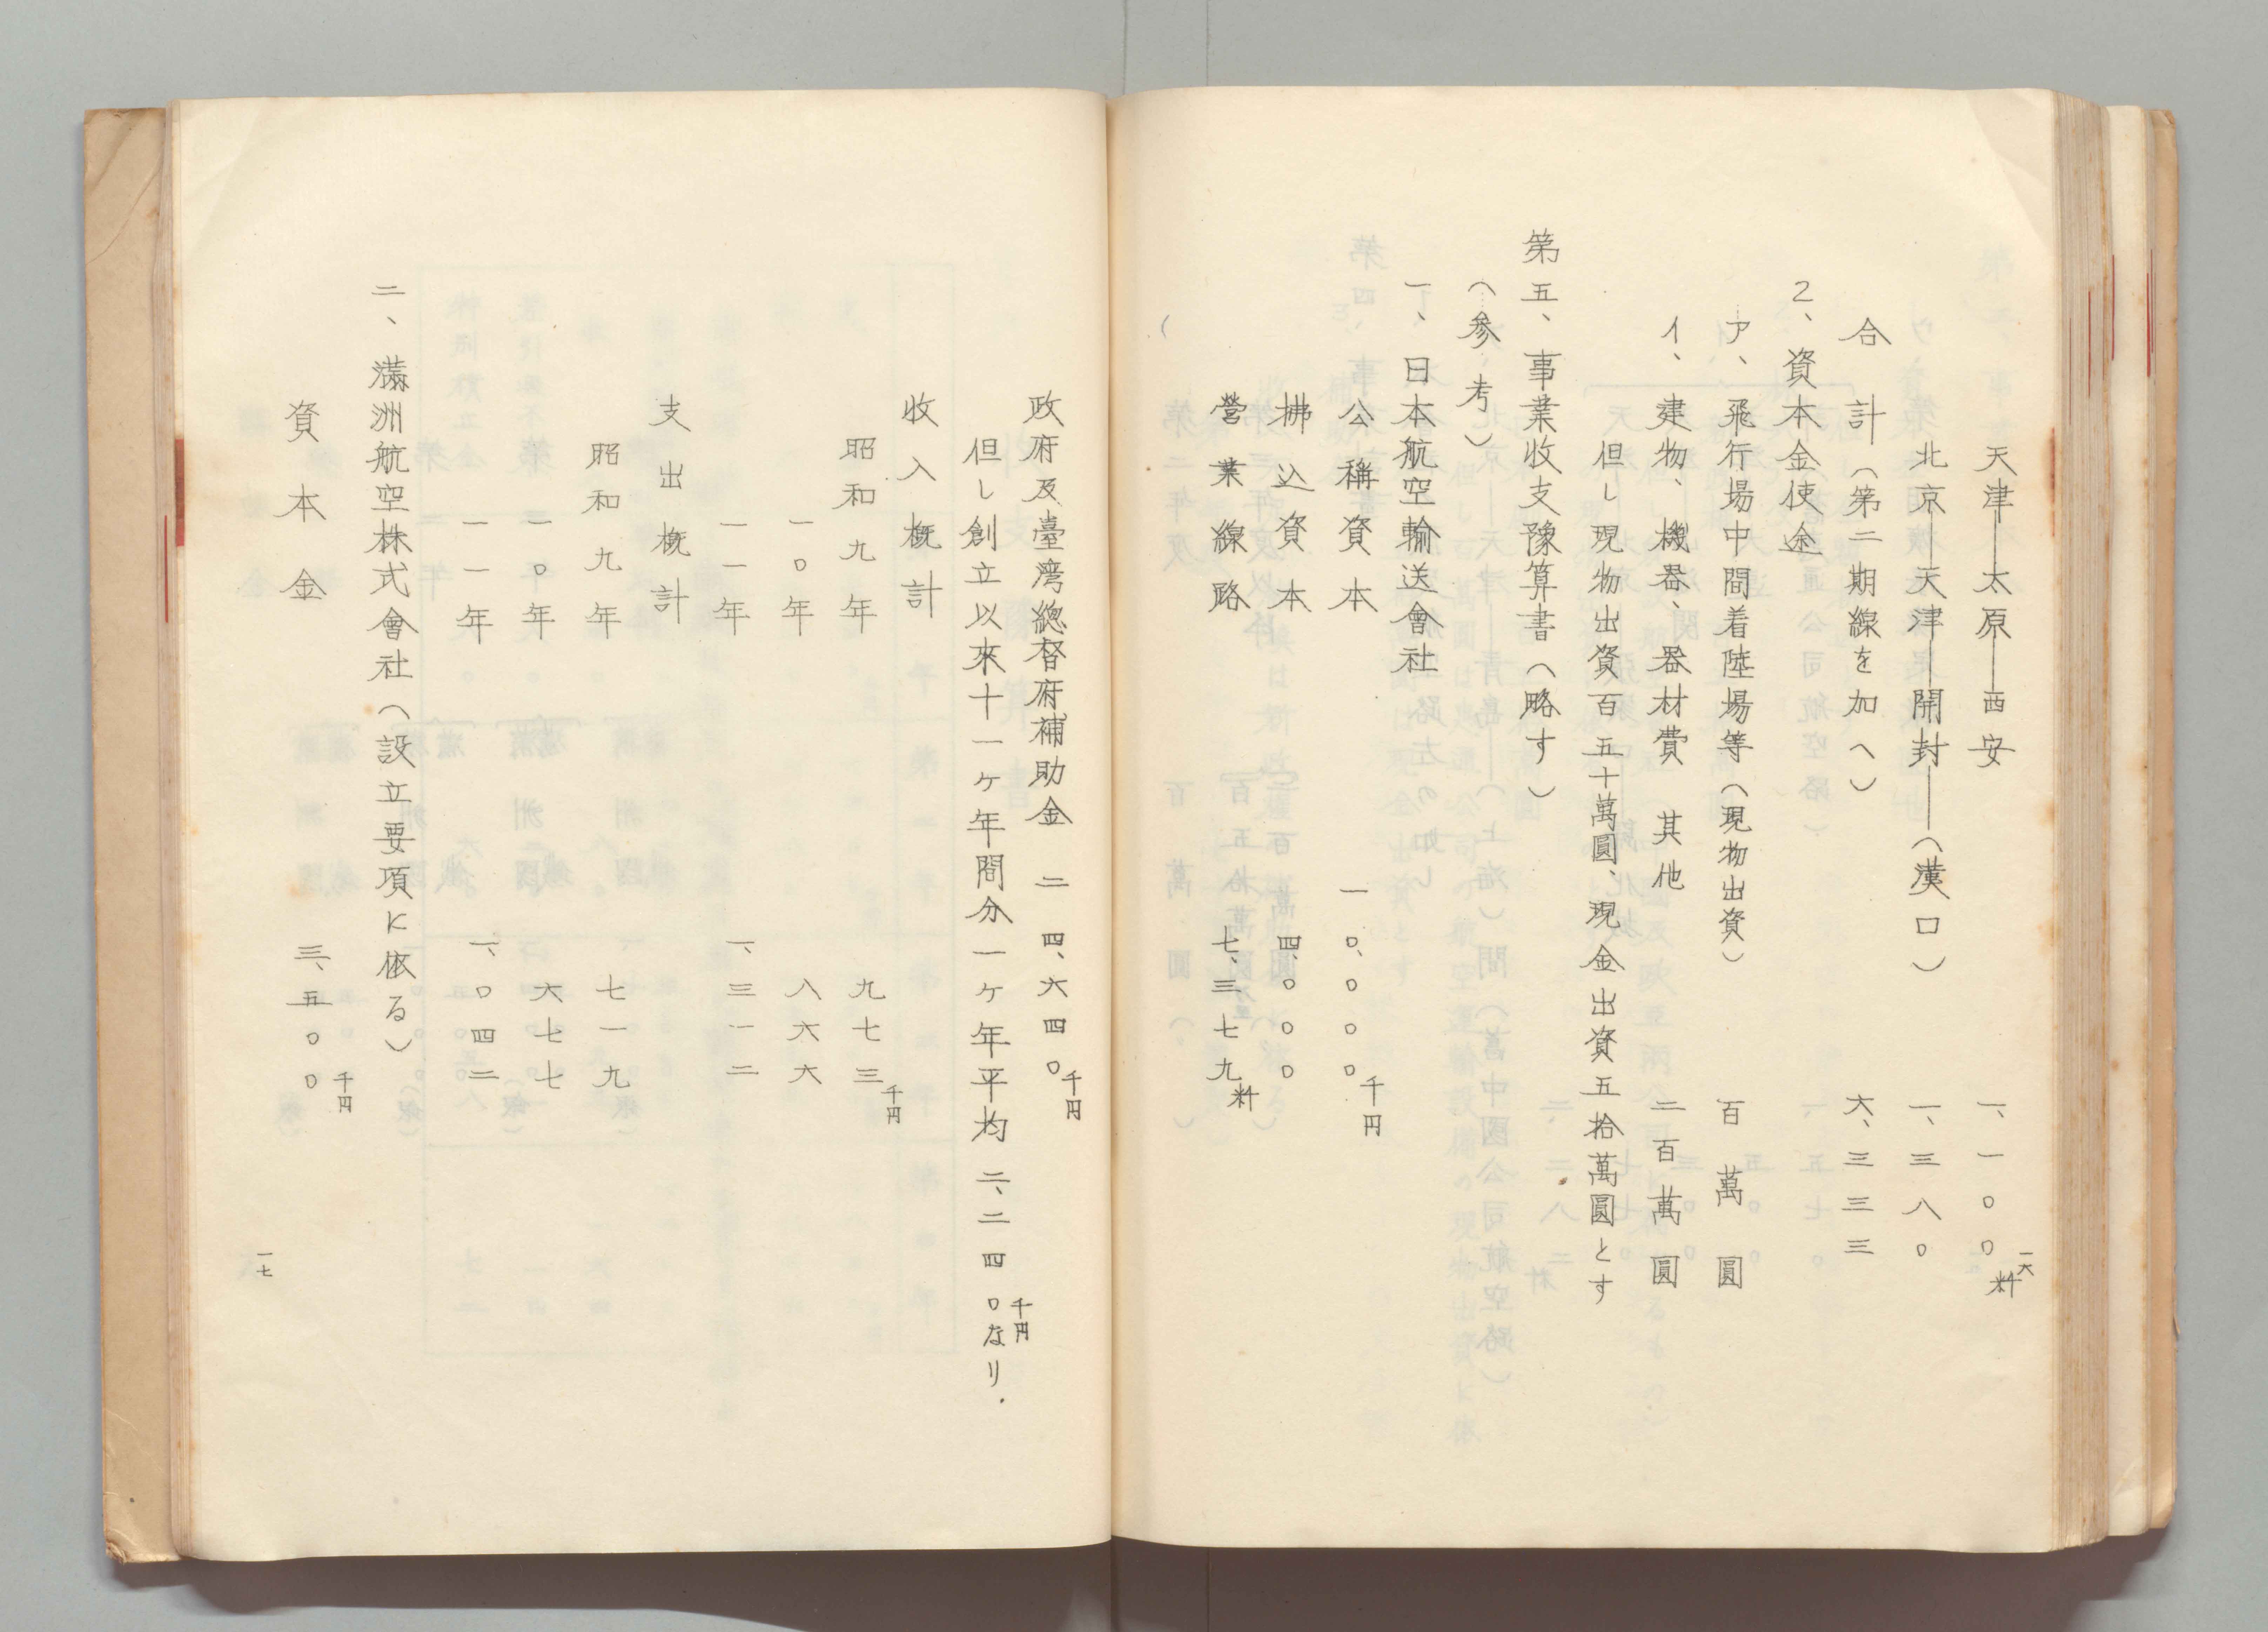 一六
天津―太原―西安　一、一〇〇粁
北京―天津―開封―（漢口）　一、三八〇
合計（第二期線を加へ）　六、三三三
2、資本金使途
ア、飛行場中間着陸場等（現物出資）　百萬圓
イ、建物、機器、器材費　其他　二百萬圓
但し現物出資百五十萬圓、現金出資五拾萬圓とす
第五、事業收支豫算書（略す）
（参考）
一、日本航空輸送會社
公稱資本　一〇、〇〇〇千円
拂込資本　四、〇〇〇
營業線路　七、三七九粁
政府及臺灣總督府補助金　二四、六四〇千円
但し創立以來十一ヶ年間分一ヶ年平均二、二四〇千円なり．
收入概計
昭和九年　九七三千円
一〇年　八六六
一一年　一、三一二
支出概計
昭和九年　七一九
一〇年　六七七
一一年　一、〇四二
二、滿洲航空株式會社（設立要項に依る）
資本金　三、五〇〇千円
一七